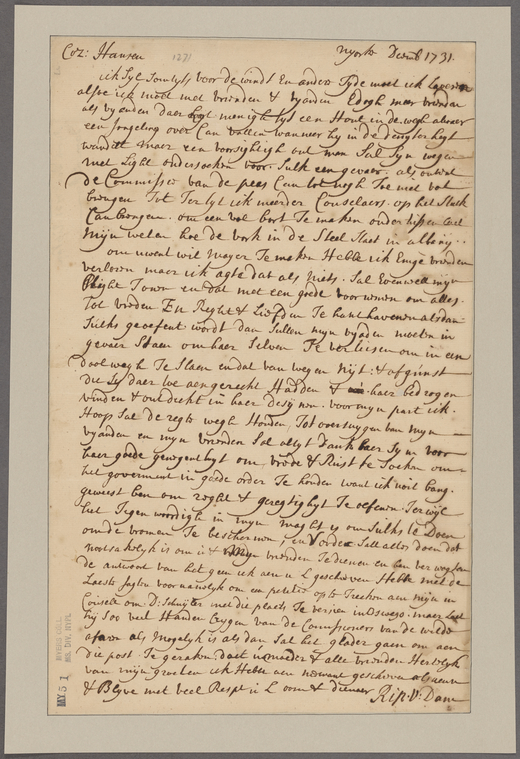 Coz: Hansen 1731 nyork Decmb 1731
ick Syl Somtyts voor de windt En andere Tyde moet ick laveren
alsoo ick moet met vrienden & vyanden Edogh meer vrienden
als vyanden daer legt menigh tyt een Hout in de wegh alwaer
een Jongeling over Can vallen wanneer hy in de
wandelt maer een voorsightigh out man Sal Syn wegen
met Light ondersoeken voor Sulk een gevaer
de Commissie van de pees Can tot nogh Toe niet
brengen Tot Ter tyt ick meerder Conselaers op het Stuck
Can brengen om een vol bort Te maken
mijn weten hoe de vork in de Steel Staet in albany
om uwent wil mayor Te maken Hebbe ick Eenige vrinden
verloren maer ick agte dat als niets Sal Evenwell myn
plight Toonen en dat met een goede voornemen om alles
Tot vreden En Reght & Liefden Te hanthavenen alsdan
Sulks geoefent wordt dan Sullen myn vyanden moeten in
gevaer Staen om haer Selven Te verliesen om in een
dool wegh Te Slaen en dat van wegen nijt & afgunst
die Sy daer toe aengereckt Hadden & haer bedrogen
vinden & ontdeckt in haer voor myn part ick
Hoop Sal de regte wegh Houden Tot overtuygen van myn
vyanden en myn vrienden Sal altyt Dankbaer Syn voor
haer goede genegenthyt om vrede & Rust te Soeken om
het government in goede order Te houden want ick noit bang
geweest ben om reght & geregtighyt Te oefenen Terwijl
het Tegenwoordigh in myn maght is om Sulks te Doen
om de vromen Te beschermen, en vorder Sall alles doen dat
nootsakelyk is om U & myn vrienden Te dienen en ben verwagten
de antwoort van het geen ick aen u L geschreven Hebbe met de
Laeste voornamelyk om een petitie op te Trecken aen mijn in
Conselle om D: Schuijler met die plaets Te versien in Oswego maer laet
hy Soo veel Handen Crygen van de Commissioners van de wilde
afaren als mogelyk is alsdan Sal het gladder gaen om aen
die post Te geraken & alle vrienden Hertelyk
van mijn groeten ick Hebbe aen geschreven
& Blyve met veel Respt u L oom & dienaer Rip V: Dam
MAY 51
MS. DIV. NYPL